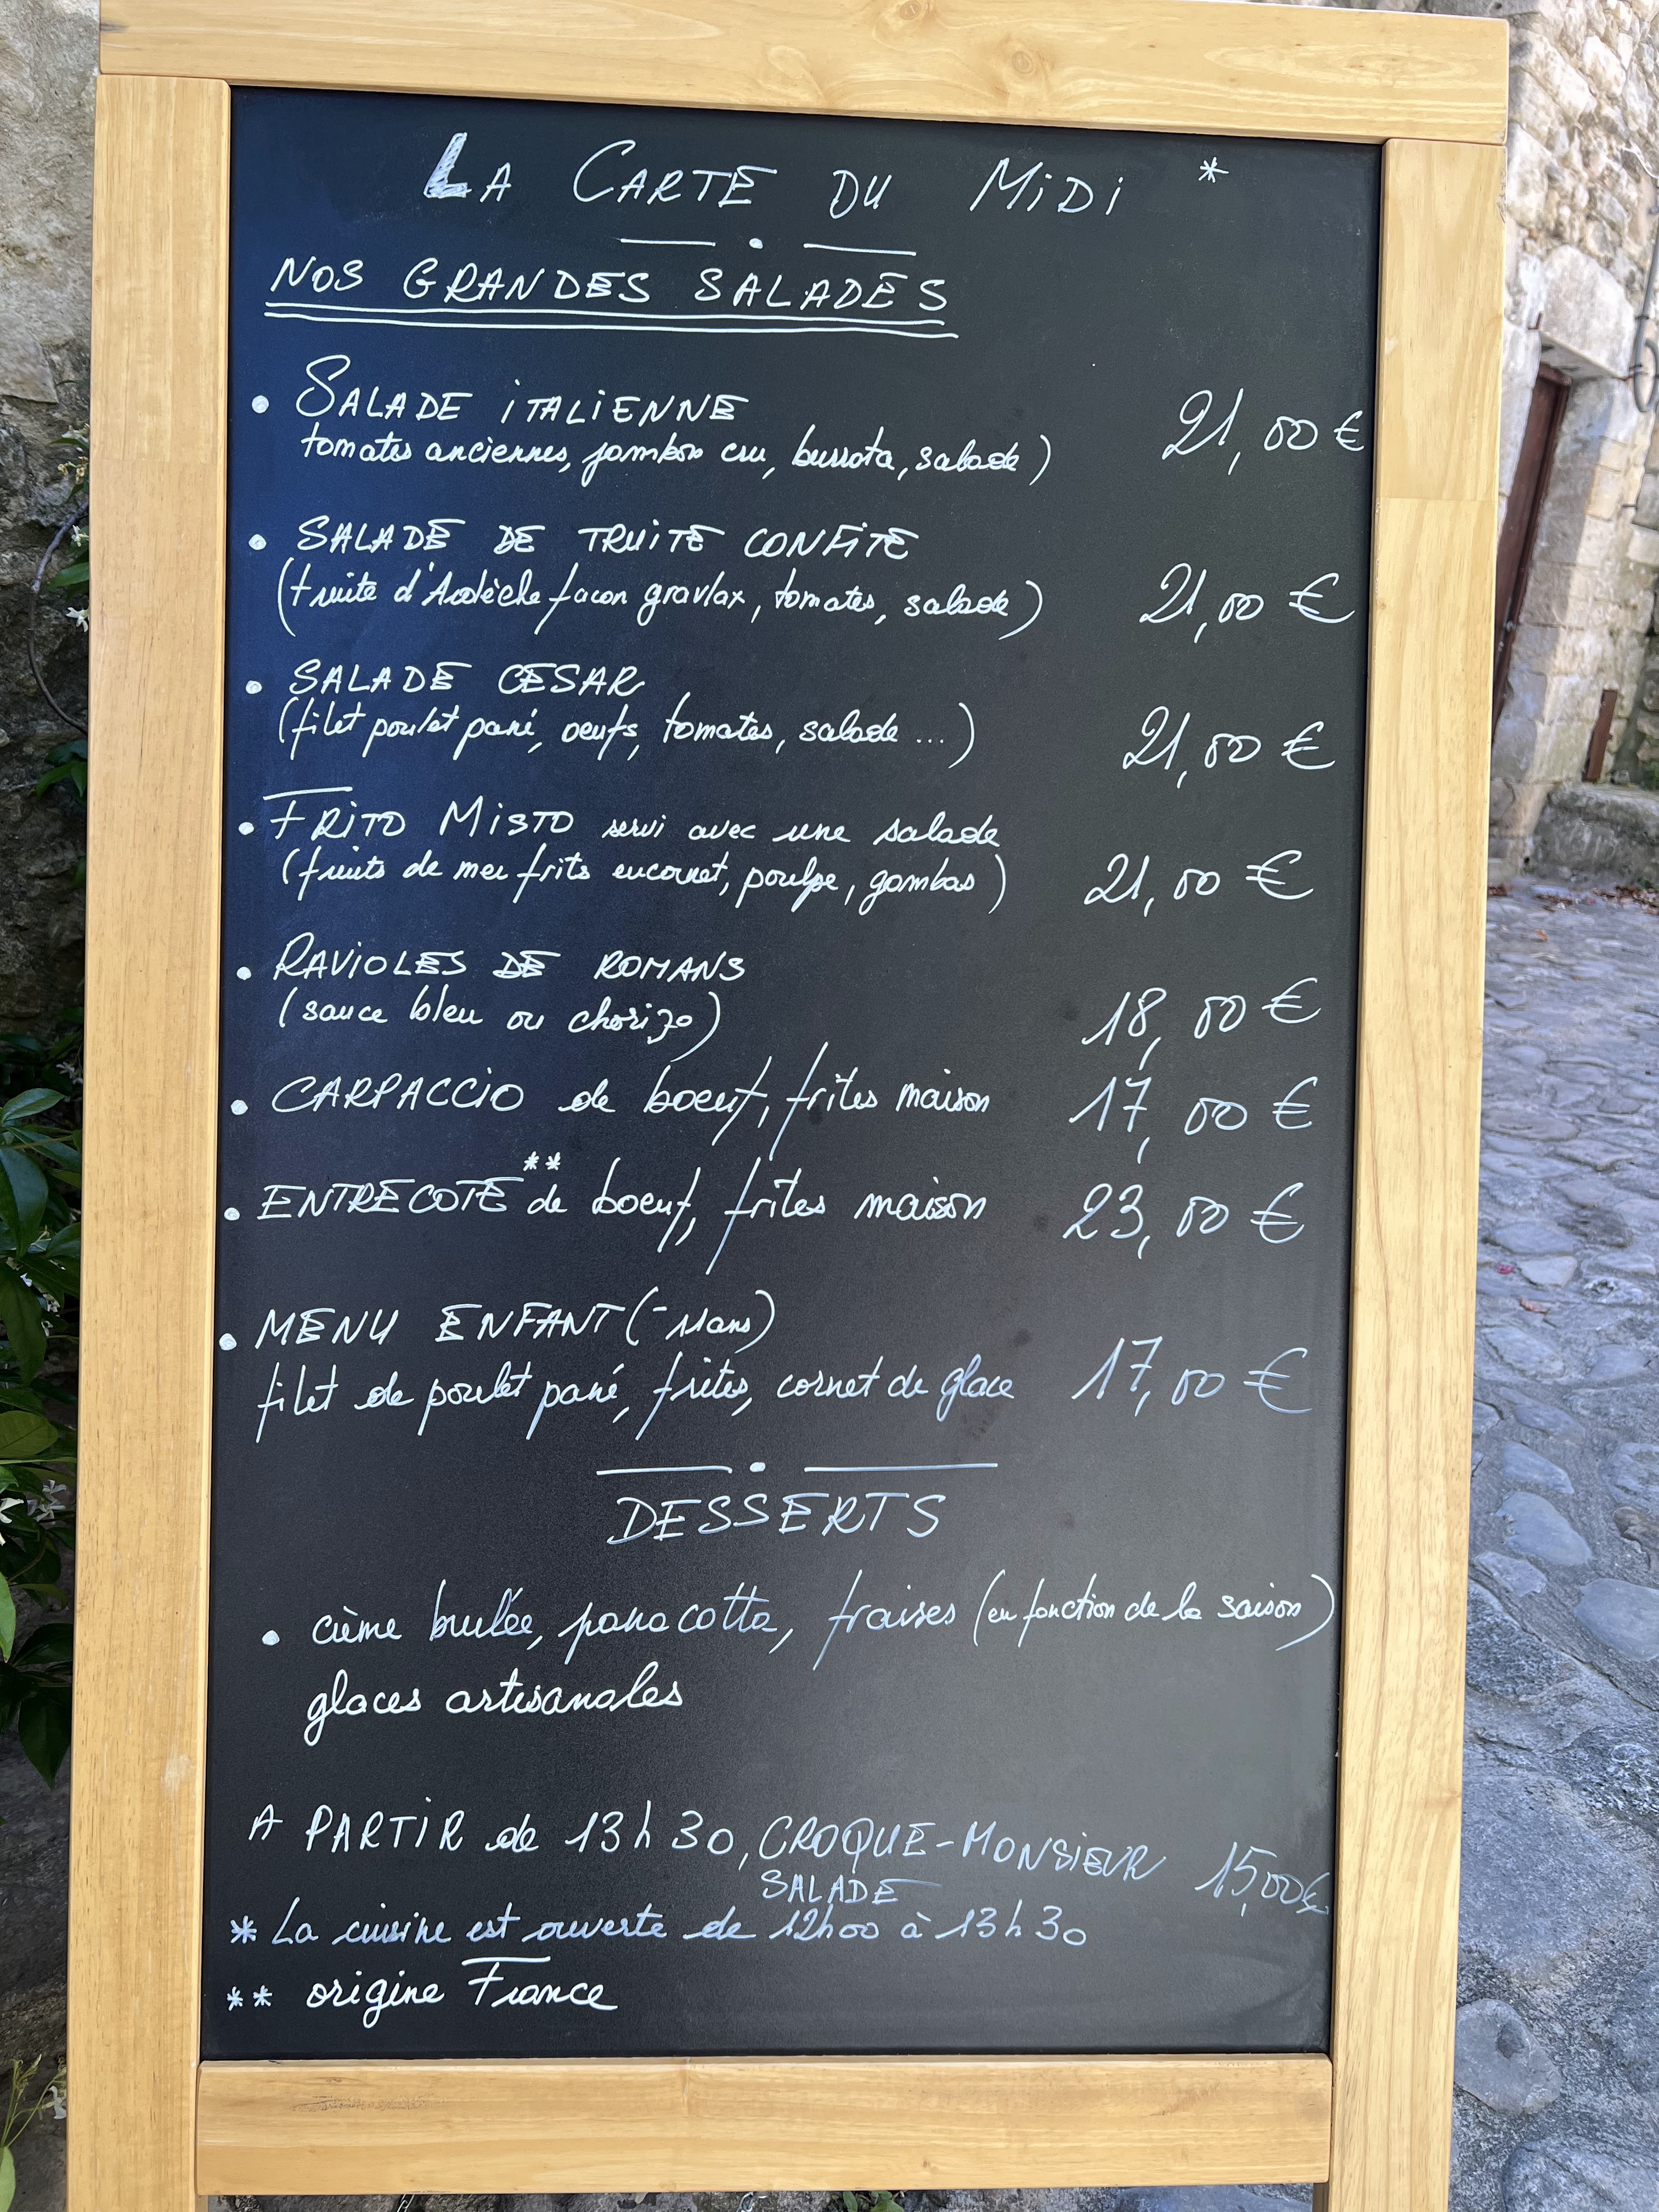 LA CARTE DU MiDi *
NOS GRANDES SALADES
• SALADE iTALiENNE
tomates anciennes, jambon cru, burrata, salade) 21,00 €
• SALADE DE TRUiTE CONFiTE
(truite d'Ardèche facon gravlax, tomates, salade) 21,00 €
• SALADE CESAR
(filet poulet pané, oeufs, tomates, salade ...) 21,00 €
• FRiTO MiSTO servi avec une salade
(fruits de mer frits encornet, poulpe, gambas) 21,00 €
• RAViOLES DE ROMANS
(sauce bleu ou chorizo) 18,00 €
• CARPACCiO de boeuf, frites maison 17,00 €
• ENTRECOTE** de boeuf, frites maison 23,00 €
• MENU ENFANT (-11ans)
filet de poulet pané, frites, cornet de glace 17,00 €
DESSERTS
• crème brulée, pana cotta, fraises (en fonction de la saison)
glaces artisanales
A PARTiR de 13h30, CROQUE-MONSiEUR 15,00€
SALADE
* La cuisine est ouverte de 12h00 à 13h30
** origine France